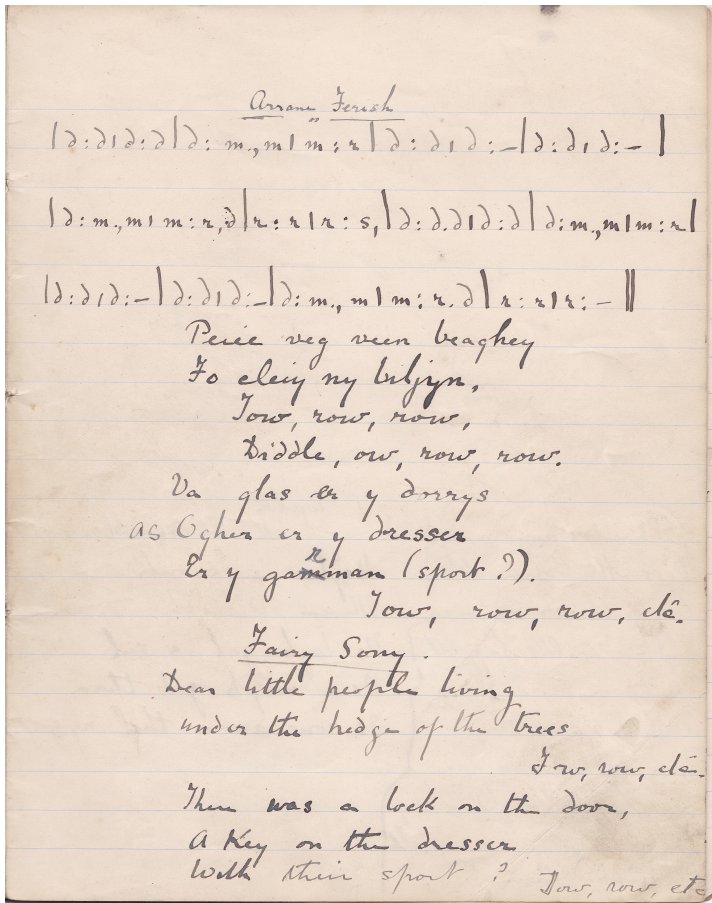 Arrane Ferish
| d : d | d : d | d : m ., m | m : r | d : d | d : – | d : d | d : – |
| d : m ., m | m : r , d | r : r | r : s, | d : d . d | d : d | d : m ., m | m : r |
| d : d | d : – | d : d | d : – | d : m ., m | m : r . d | r : r | r : – ||
Peiee veg veen beaghey
Fo cleiy ny biljyn,
Tow, row, row,
Diddle, ow, row, row.
Va glas er y dorrys
as Ogher er y dresser
Er y garrman (sport ?).
Tow, row, row, etc.
Fairy Song.
Dear little people living
under the hedge of the trees
Tow, row, etc.
There was a lock on the door,
A Key on the dresser
With their sport ? Dow, row, etc